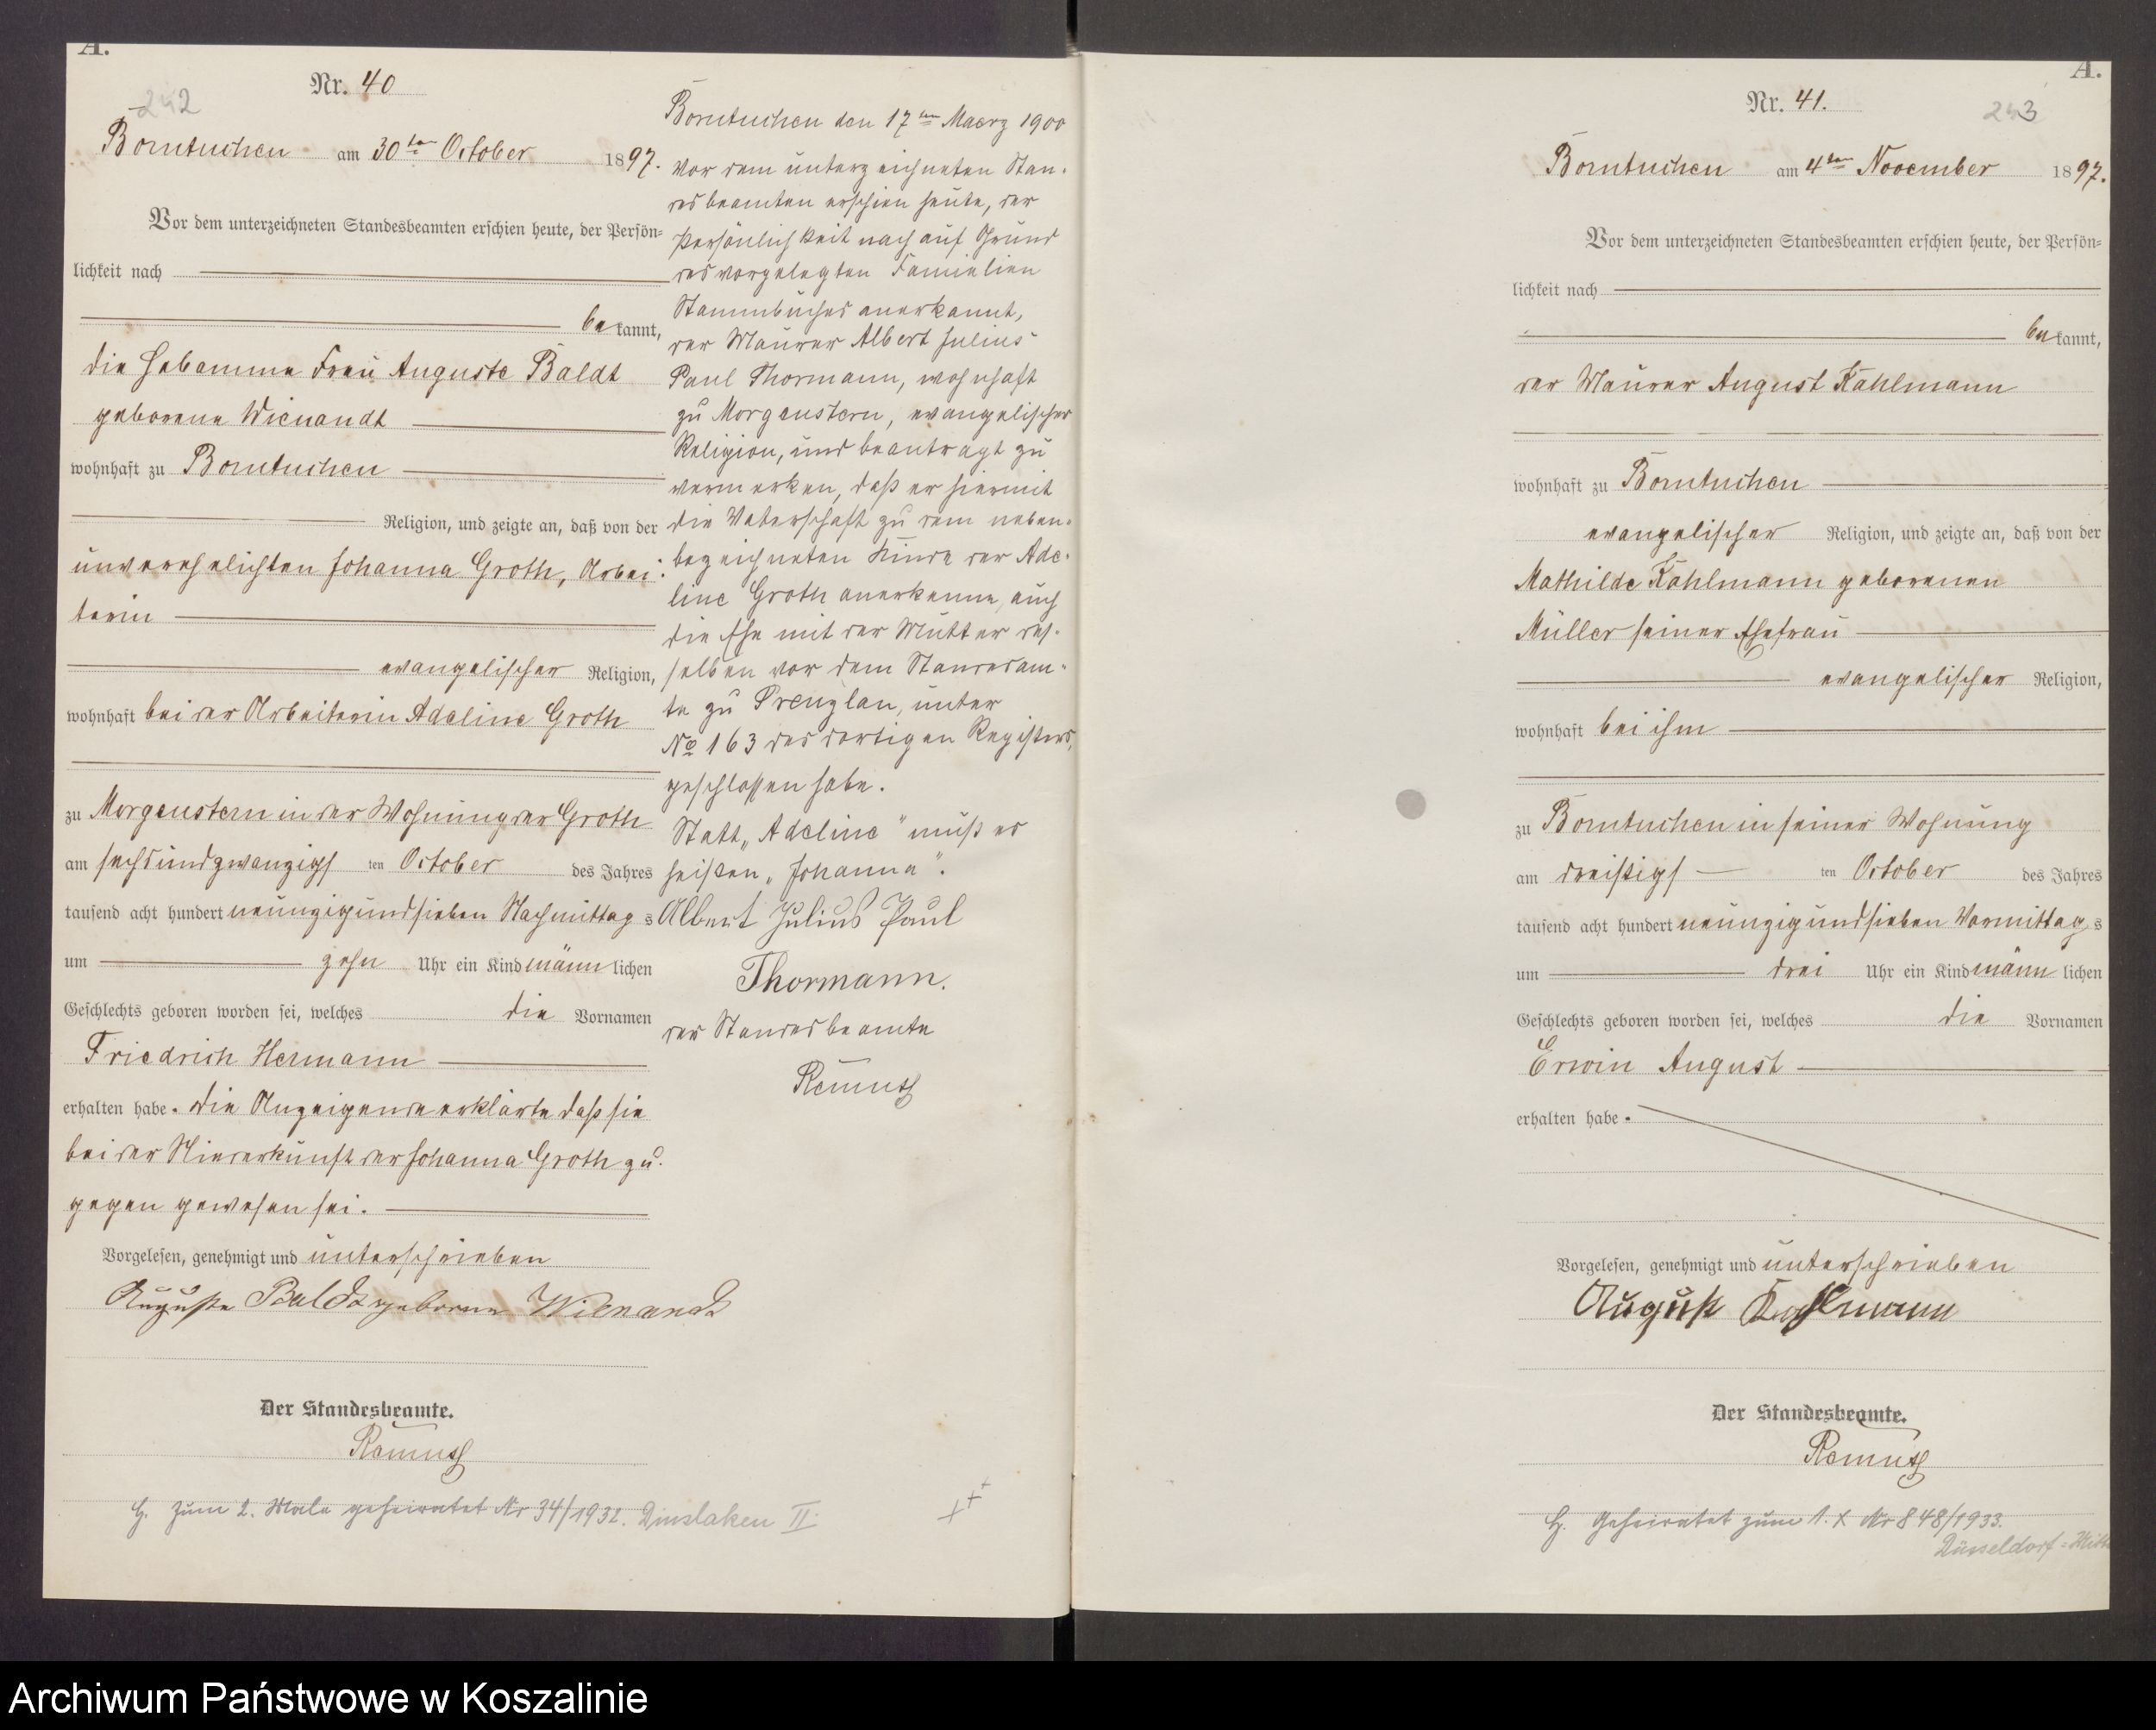 A.
242
Nr. 40
Borntuchen am 30ten October 1897.
Vor dem unterzeichneten Standesbeamten erschien heute, der Persön=
lichkeit nach
bekannt,
die Hebamme Frau Auguste Baldt
geborene Wienandt
wohnhaft zu Borntuchen
Religion, und zeigte an, daß von der
unverehelichten Johanna Groth, Arbei-
terin
evangelischer Religion,
wohnhaft bei der Arbeiterin Adeline Groth
zu Morgenstern in der Wohnung der Groth
am sechsundzwanzigs ten October des Jahres
tausend acht hundert neunzig und sieben Nachmittag s
um zehn Uhr ein Kind männ lichen
Geschlechts geboren worden sei, welches die Vornamen
Friedrich Hermann
erhalten habe. Die Anzeigende erklärte daß sie
bei der Niederkunft der Johanna Groth zu-
gegen gewesen sei.
Vorgelesen, genehmigt und unterschrieben
Auguste Baldt geborene Wienandt
Der Standesbeamte.
Remus
H. zum 2. Male geheiratet Nr 34/1932. Dinslaken II.
Borntuchen den 17ten Maerz 1900
Vor dem unterzeichneten Stan-
desbeamten erschien heute, der
Persönlichkeit nach auf Grund
des vorgelegten Familien
Stammbuches anerkannt,
der Maurer Albert Julius
Paul Thormann, wohnhaft
zu Morgenstern, evangelischer
Religion, und beantragt zu
vermerken, daß er hiermit
die Vaterschaft zu dem neben-
bezeichneten Kinde der Ade-
line Groth anerkenne, auch
die Ehe mit der Mutter des-
selben vor dem Standesam-
te zu Prenzlau, unter
No 163 des dortigen Registers,
geschlossen habe.
Statt „Adeline" muß es
heißen „Johanna".
Albert Julius Paul
Thormann.
der Standesbeamte
Remus
A.
243
Nr. 41.
Borntuchen am 4ten November 1897.
Vor dem unterzeichneten Standesbeamten erschien heute, der Persön=
lichkeit nach
bekannt,
der Maurer August Kahlmann
wohnhaft zu Borntuchen
evangelischer Religion, und zeigte an, daß von der
Mathilde Kahlmann geborenen
Müller seiner Ehefrau
evangelischer Religion,
wohnhaft bei ihm
zu Borntuchen in seiner Wohnung
am dreißigs ten October des Jahres
tausend acht hundert neunzig und sieben Vormittag s
um drei Uhr ein Kind männ lichen
Geschlechts geboren worden sei, welches die Vornamen
Erwin August
erhalten habe.
Vorgelesen, genehmigt und unterschrieben
August Kahlmann
Der Standesbeamte.
Remus
H. Geheiratet zum 1. X Nr 848/1933.
Düsseldorf=Mitte
Archiwum Państwowe w Koszalinie